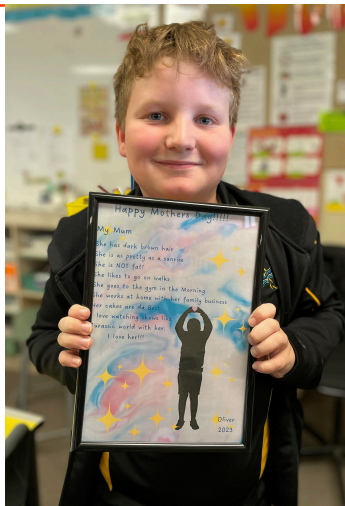 Happy Mothers Day!!!!!
My Mum
She has dark brown hair
She is as pretty as a sunrise
She is NOT fat!
She likes to go on walks.
She goes to the gym in the Morning
She works at home with her family business
Her cakes are da best
I love watching shows like
Jurassic world with her.
I love her!!!
Oliver
2023